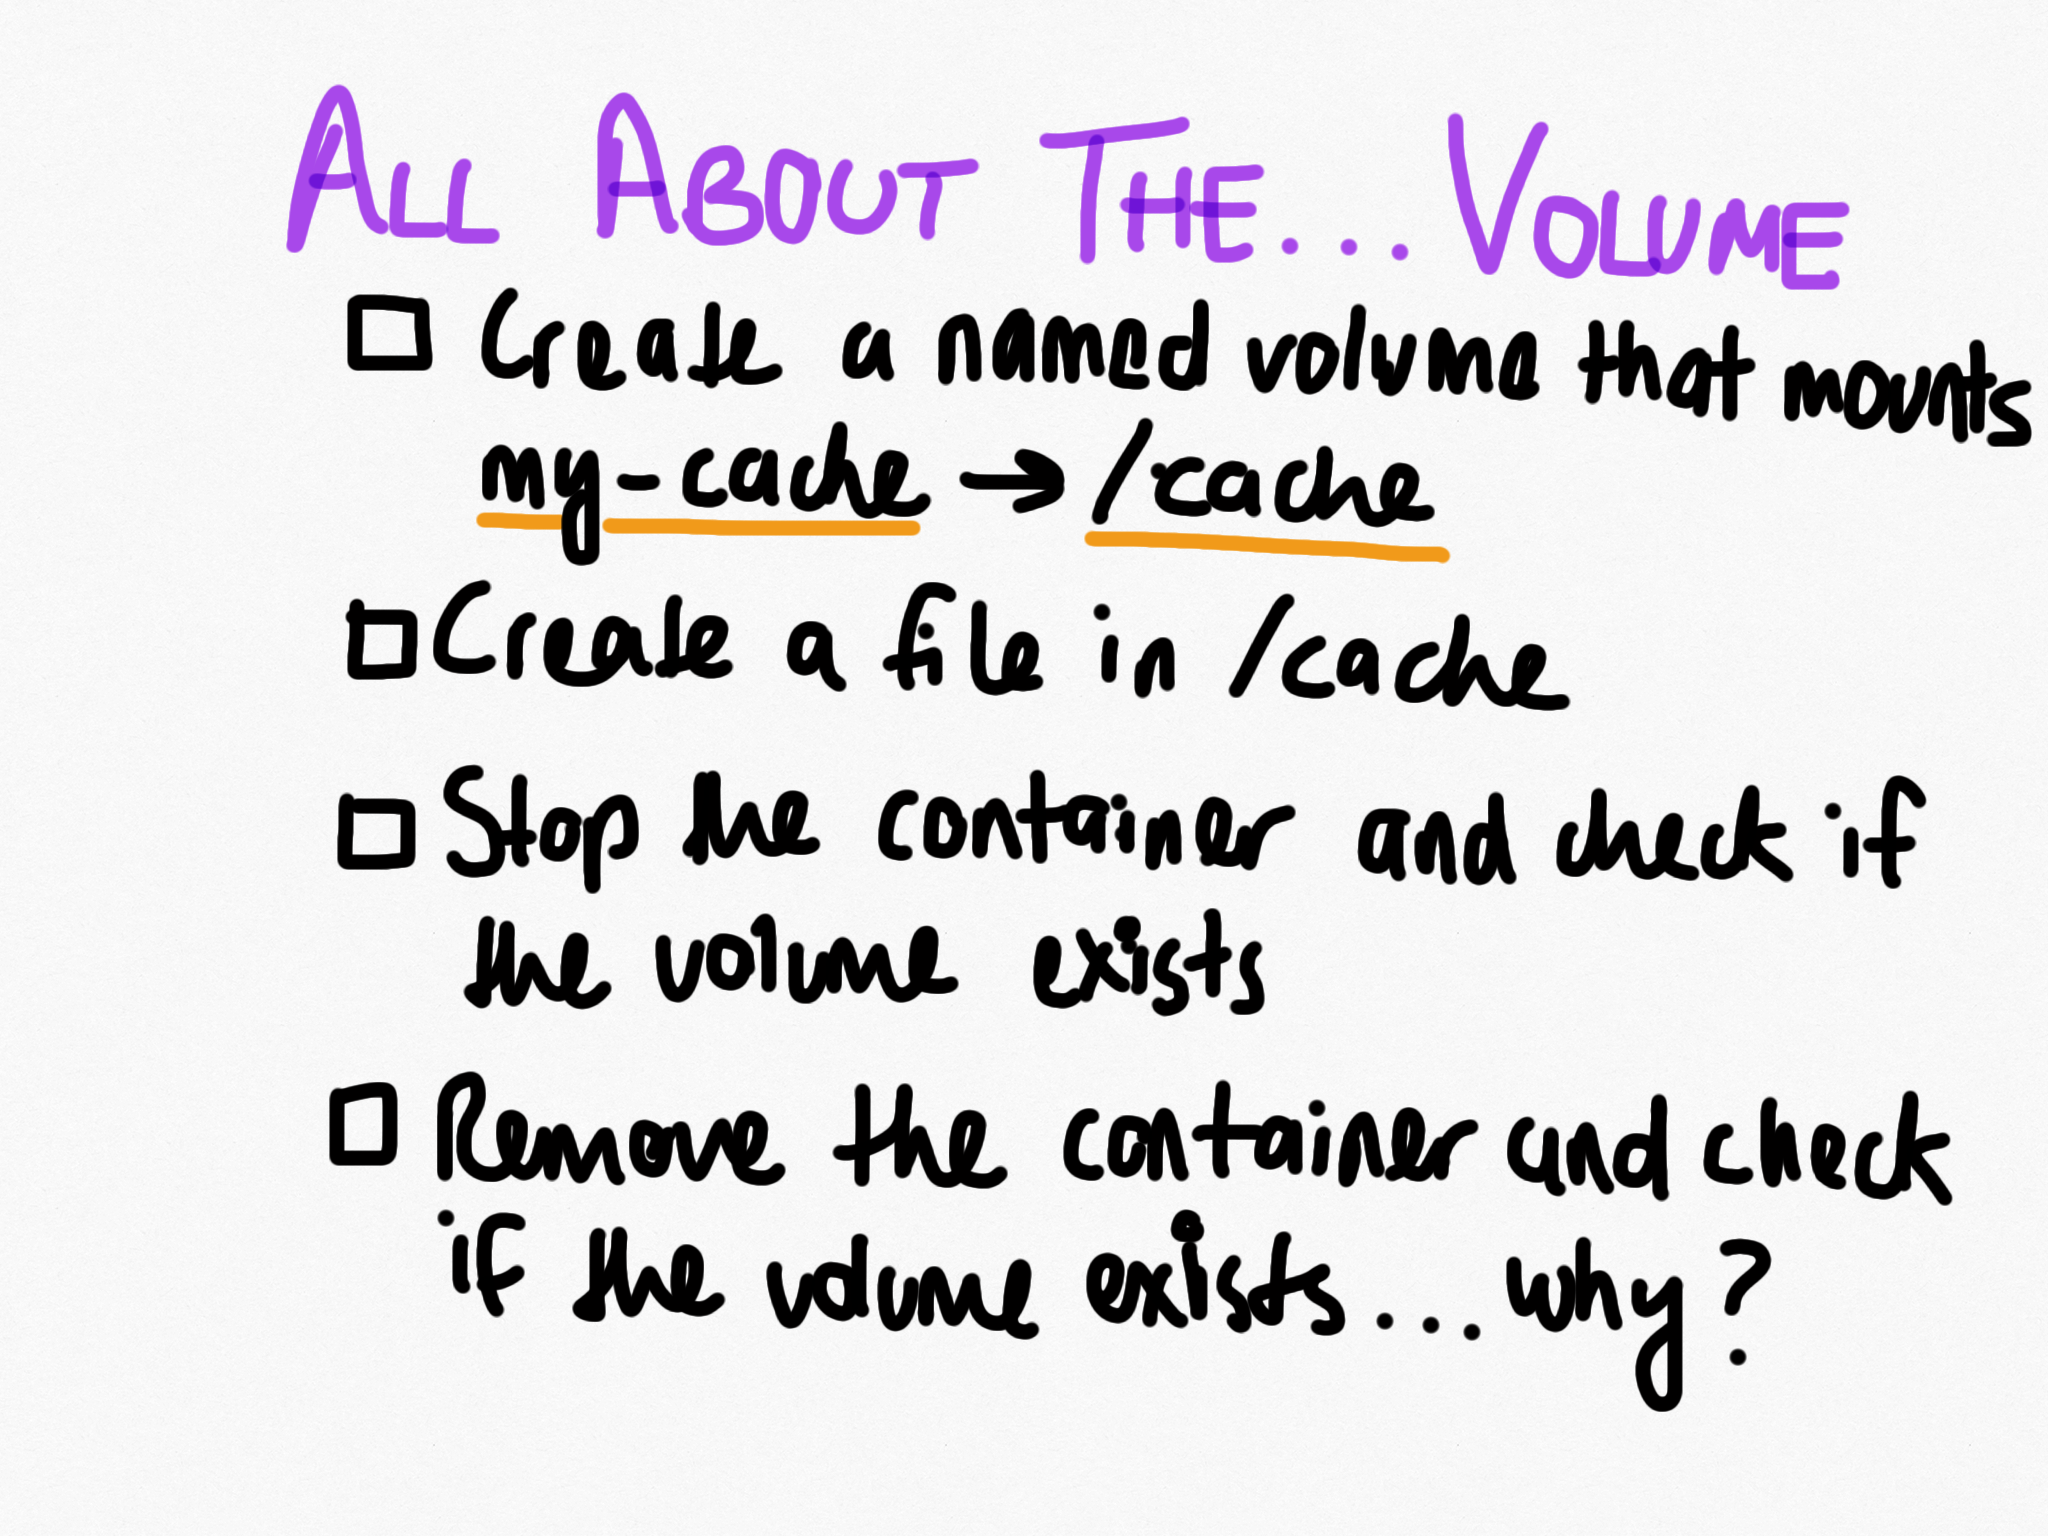 ALL ABOUT THE... VOLUME
Create a named volume that mounts
my-cache → /cache
Create a file in /cache
Stop the container and check if
the volume exists
Remove the container and check
if the volume exists... why?